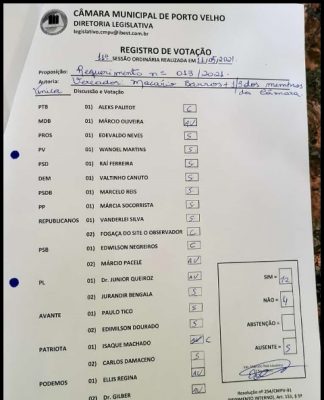 CÂMARA MUNICIPAL DE PORTO VELHO
DIRETORIA LEGISLATIVA
legislativo.cmpv@ibest.com.br
REGISTRO DE VOTAÇÃO
11ª SESSÃO ORDINÁRIA REALIZADA EM 11/05/2021
Proposição: Requerimento nº 013/2021.
Autoria: Vereador Macário Barros + 1/3 dos membros da Câmara
Única Discussão e Votação
PTB 01) ALEKS PALITOT C
MDB 01) MÁRCIO OLIVEIRA AU
PROS 01) EDEVALDO NEVES S
PV 01) WANOEL MARTINS S
PSD 01) RAÍ FERREIRA S
DEM 01) VALTINHO CANUTO S
PSDB 01) MARCELO REIS S
PP 01) MÁRCIA SOCORRISTA S
REPUBLICANOS 01) VANDERLEI SILVA S
02) FOGAÇA DO SITE O OBSERVADOR C
PSB 01) EDWILSON NEGREIROS C
02) MÁRCIO PACELE AU
PL 01) Dr. JUNIOR QUEIROZ AU
02) JURANDIR BENGALA S
AVANTE 01) PAULO TICO S
02) EDIMILSON DOURADO S
PATRIOTA 01) ISAQUE MACHADO C
02) CARLOS DAMACENO S
PODEMOS 01) ELLIS REGINA AU
02) Dr. GILBER AU
SIM = 12
NÃO = 4
ABSTENÇÃO =
AUSENTE = 5
Resolução nº 254/CMPV-91
REGIMENTO INTERNO, Art. 153, § 5º